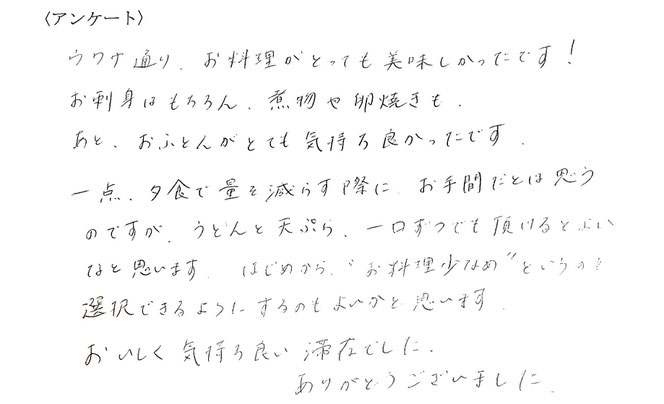 〈アンケート〉
ウワサ通り、お料理がとっても美味しかったです！
お刺身はもちろん、煮物や卵焼きも、
あと、おふとんがとても気持ち良かったです。
一点、夕食で量を減らす際に、お手間だとは思う
のですが、うどんと天ぷら、一口ずつでも頂けるとよい
なと思います。はじめから、“お料理少なめ”というのを
選択できるようにするのもよいかと思います。
おいしく気持ち良い滞在でした。
ありがとうございました。